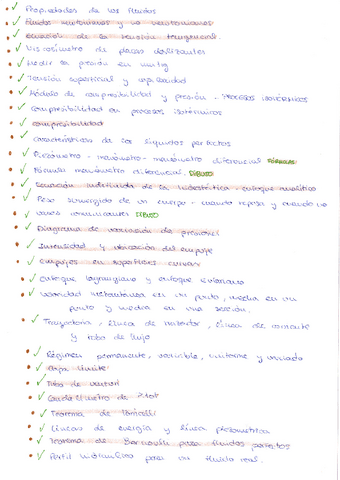 Propiedades de los fluidos
Fluidos newtonianos y no newtonianos
Ecuación de la tensión tangencial.
Viscosímetro de placas deslizantes
Medir la presión en mmHg
Tensión superficial y capilaridad
Módulo de compresibilidad y presión - Procesos isotérmicos
Compresibilidad en procesos isotérmicos
Compresibilidad
Características de los líquidos perfectos
Piezómetro - manómetro - manómetro diferencial FÓRMULAS
Fórmula manómetro diferencial. DIBUJO
Ecuación indefinida de la hidrostática - enfoque analítico
Peso sumergido de un cuerpo - cuando reposa y cuando no
vasos comunicantes DIBUJO
Diagrama de variación de presiones
Intensidad y ubicación del empuje
Empujes en superficies curvas
Enfoque lagrangiano y enfoque euleriano
Velocidad instantánea en un punto, media en un
punto y media en una sección.
Trayectoria, línea de trazador, línea de corriente
y tubo de flujo
Régimen permanente, variable, uniforme y variado
Capa límite
Tubo de Venturi
de Pitot
Teorema de Torricelli
Líneas de energía y línea piezométrica
Teorema de Bernoulli para fluidos perfectos
Perfil hidráulico para un fluido real.